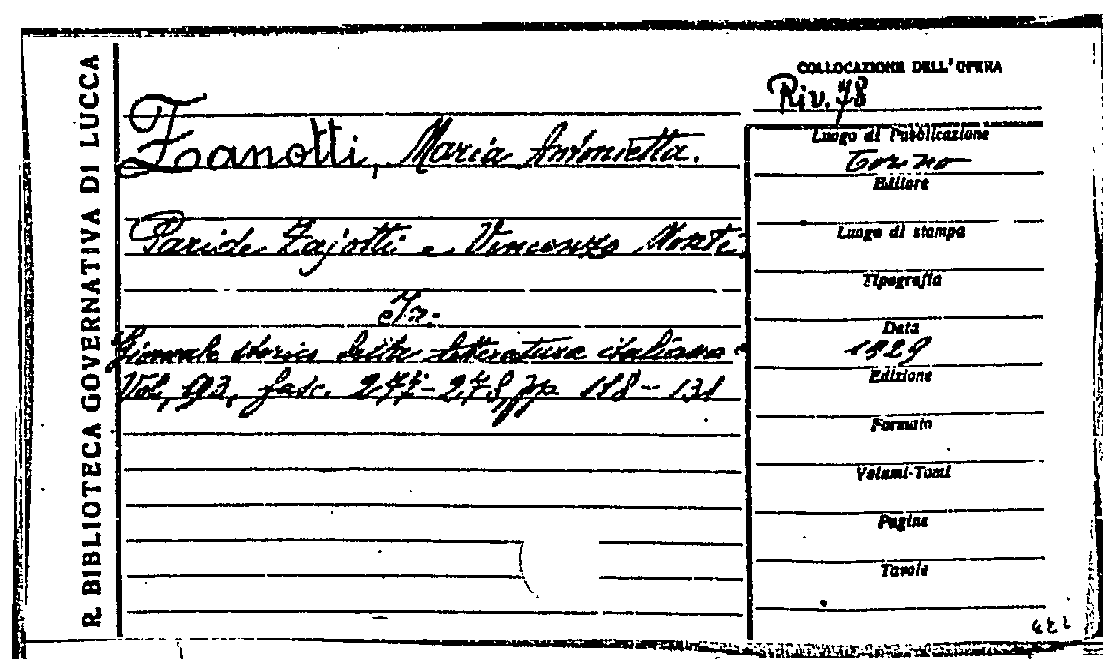 R. BIBLIOTECA GOVERNATIVA DI LUCCA
COLLOCAZIONE DELL'OPERA
Riv. 78
Zanotti, Maria Antonietta.
Paride Zajotti e Vincenzo Monti
In:
Giornale storico della letteratura italiana
Vol, 93, fasc. 277-278, pp. 118-131
Luogo di Pubblicazione
Torino
Editore
Luogo di stampa
Tipografia
Data
1929
Edizione
Formato
Volumi-Tomi
Pagine
Tavole